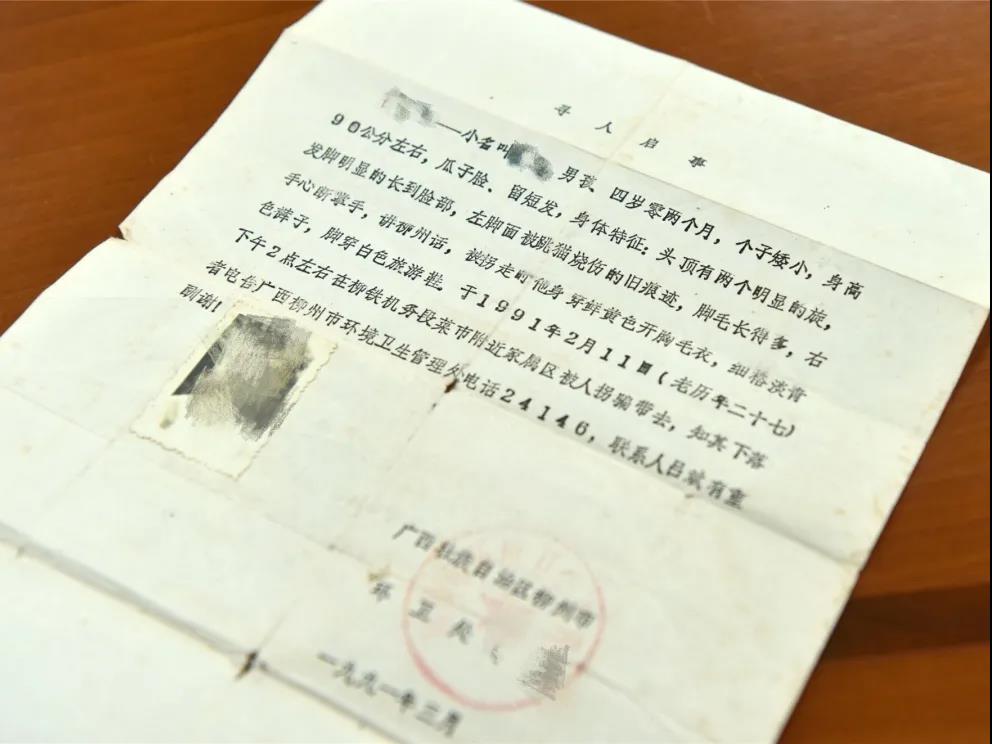 寻人启事
——小名叫 男孩、四岁零两个月，个子矮小，身高
90公分左右，瓜子脸、留短发，身体特征：头顶有两个明显的旋，
发脚明显的长到脸部，左脚面被跳猫烧伤的旧痕迹，脚毛长得多，右
手心断掌手，讲柳州话，被拐走时他身穿鲜黄色开胸毛衣，细格淡青
色裤子，脚穿白色旅游鞋。于1991年2月11日(老历年二十七)
下午2点左右在柳铁机务段菜市附近家属区被人拐骗带去，知其下落
者电告广西柳州市环境卫生管理处电话24146，联系人吕斌有重
酬谢！
广西壮族自治区柳州市
环卫
一九九一年二月